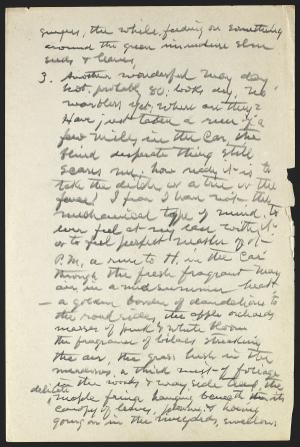 gingers, the while, feeding on something
around the green immature elm
seeds & leaves,
3. Another wonderful May day,
hot, probably 80, looks dry, no
warblers yet, where are they?
Have just taken a run of a
few miles in the Car, the
blind desperate thing still
scares me, how ready it is to
take the ditch, or a tree or the
fence! I fear I have not the
mechanical type of mind, to
ever feel at my ease with it
or to feel perfect master of it.
P.M. a run to H. in the Car
through the fresh fragrant May
air, in a midsummer heat
— a golden border of dandelions to
the road sides, the apple orchards
masses of pink & white bloom
the fragrance of lilacs streaking
the air, the grass lush in the
meadows, a third mist of foliage
in the woods & way side trees, the
delicate maple fringe hanging beneath its
canopy of leaves, plowing & having
going on in the fields,